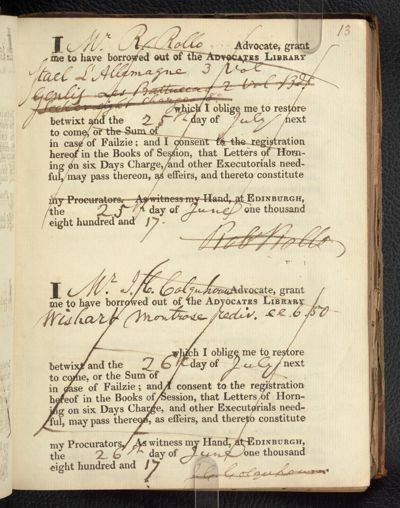 13
I Mr. R. Rollo Advocate, grant
me to have borrowed out of the ADVOCATES LIBRARY
Stael L'Allemagne 3 Vol
Genlis Les Battuecas 2 Vol
which I oblige me to restore
betwixt and the 25th day of July next
to come, or the Sum of
in case of Failzie; and I consent to the registration
hereof in the Books of Session, that Letters of Horn-
ing on six Days Charge, and other Executorials need-
ful, may pass thereon, as effeirs, and thereto constitute
my Procurators. As witness my Hand, at EDINBURGH,
the 25th day of June one thousand
eight hundred and 17.
Rob Rollo
I Mr. J. C. Colquhoun Advocate, grant
me to have borrowed out of the ADVOCATES LIBRARY
Wishart Montrose rediv. ee.6/50
which I oblige me to restore
betwixt and the 26th day of July next
to come, or the Sum of
in case of Failzie; and I consent to the registration
hereof in the Books of Session, that Letters of Horn-
ing on six Days Charge, and other Executorials need-
ful, may pass thereon, as effeirs, and thereto constitute
my Procurators. As witness my Hand, at EDINBURGH,
the 26th day of June one thousand
eight hundred and 17
J. C. Colquhoun